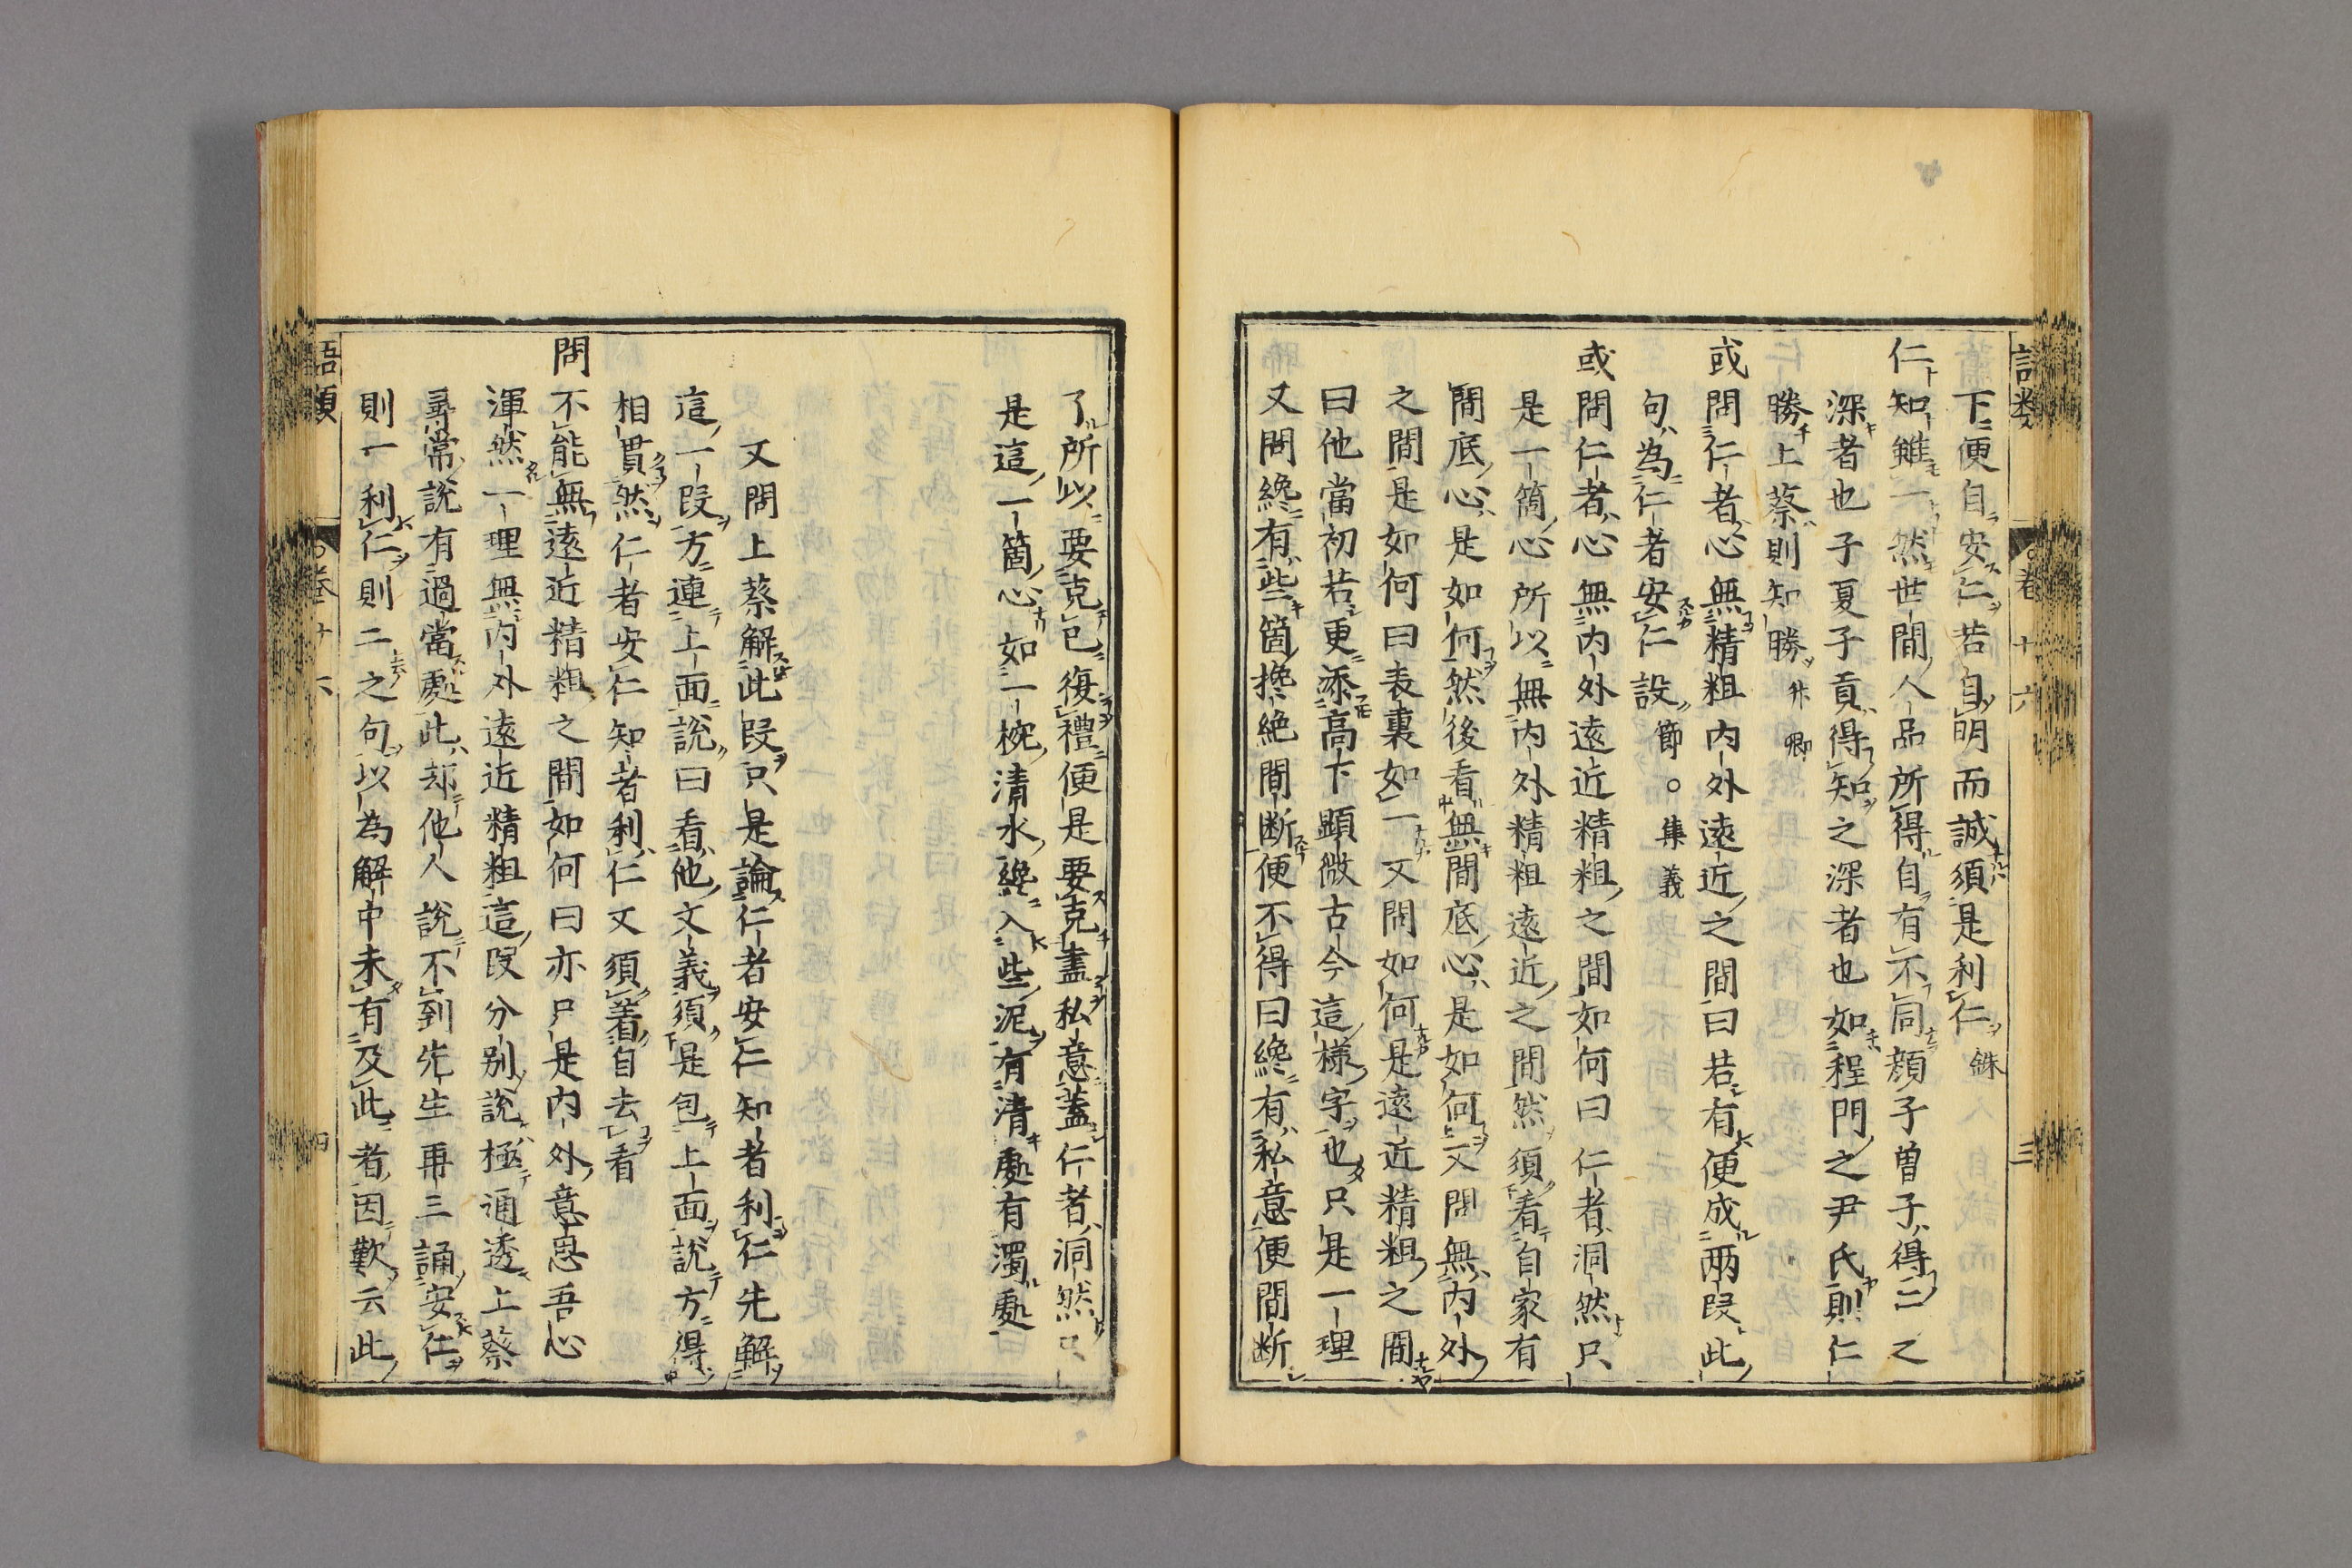 語類 卷十六 三
下便自安仁若自明而誠須是利仁銖
仁知雖一然世間人品所得自有不同顏子曾子得仁之
深者也子夏子貢得知之深者也如程門之尹氏則仁
勝上蔡則知勝升卿
或問仁者心無精粗內外遠近之間曰若有便成兩段此
句為仁者安仁設節○集義
或問仁者心無內外遠近精粗之間如何曰仁者洞然只
是一箇心所以無內外精粗遠近之間然須看自家有
間底心是如何然後看無間底心是如何又問無內外
之間是如何曰表裏如一又問如何是遠近精粗之間
曰他當初若更添高下顯微古今這樣字也只是一理
又問纔有些箇攙絕間斷便不得曰纔有私意便間斷
了所以要克己復禮便是要克盡私意蓋仁者洞然只
是這一箇心如一椀清水纔入些泥有清處有濁處
又問上蔡解此段只是論仁者安仁知者利仁先解
這一段方連上面說曰看他文義須是包上面說方得
相貫然仁者安仁知者利仁又須著自去看
問不能無遠近精粗之間如何曰亦只是內外意思吾心
渾然一理無內外遠近精粗這段分別說極通透上蔡
尋常說有過當處此却他人說不到先生再三誦安仁
則一利仁則二之句以為解中未有及此者因歎云此
語類 卷十六 四